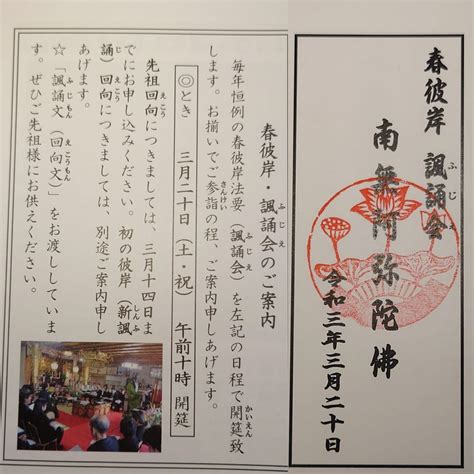 春彼岸 諷誦会
南無阿弥陀佛
令和三年三月二十日
春彼岸・諷誦会のご案内
毎年恒例の春彼岸法要（諷誦会）を左記の日程で開筵致
します。お揃いでご参詣の程、ご案内申しあげます。
◎とき 三月二十日（土・祝） 午前十時 開筵
先祖回向につきましては、三月十四日ま
でにお申し込みください。初の彼岸（新諷
誦）回向につきましては、別途ご案内申し
あげます。
☆「諷誦文（回向文）」をお渡ししていま
す。ぜひご先祖様にお供えください。